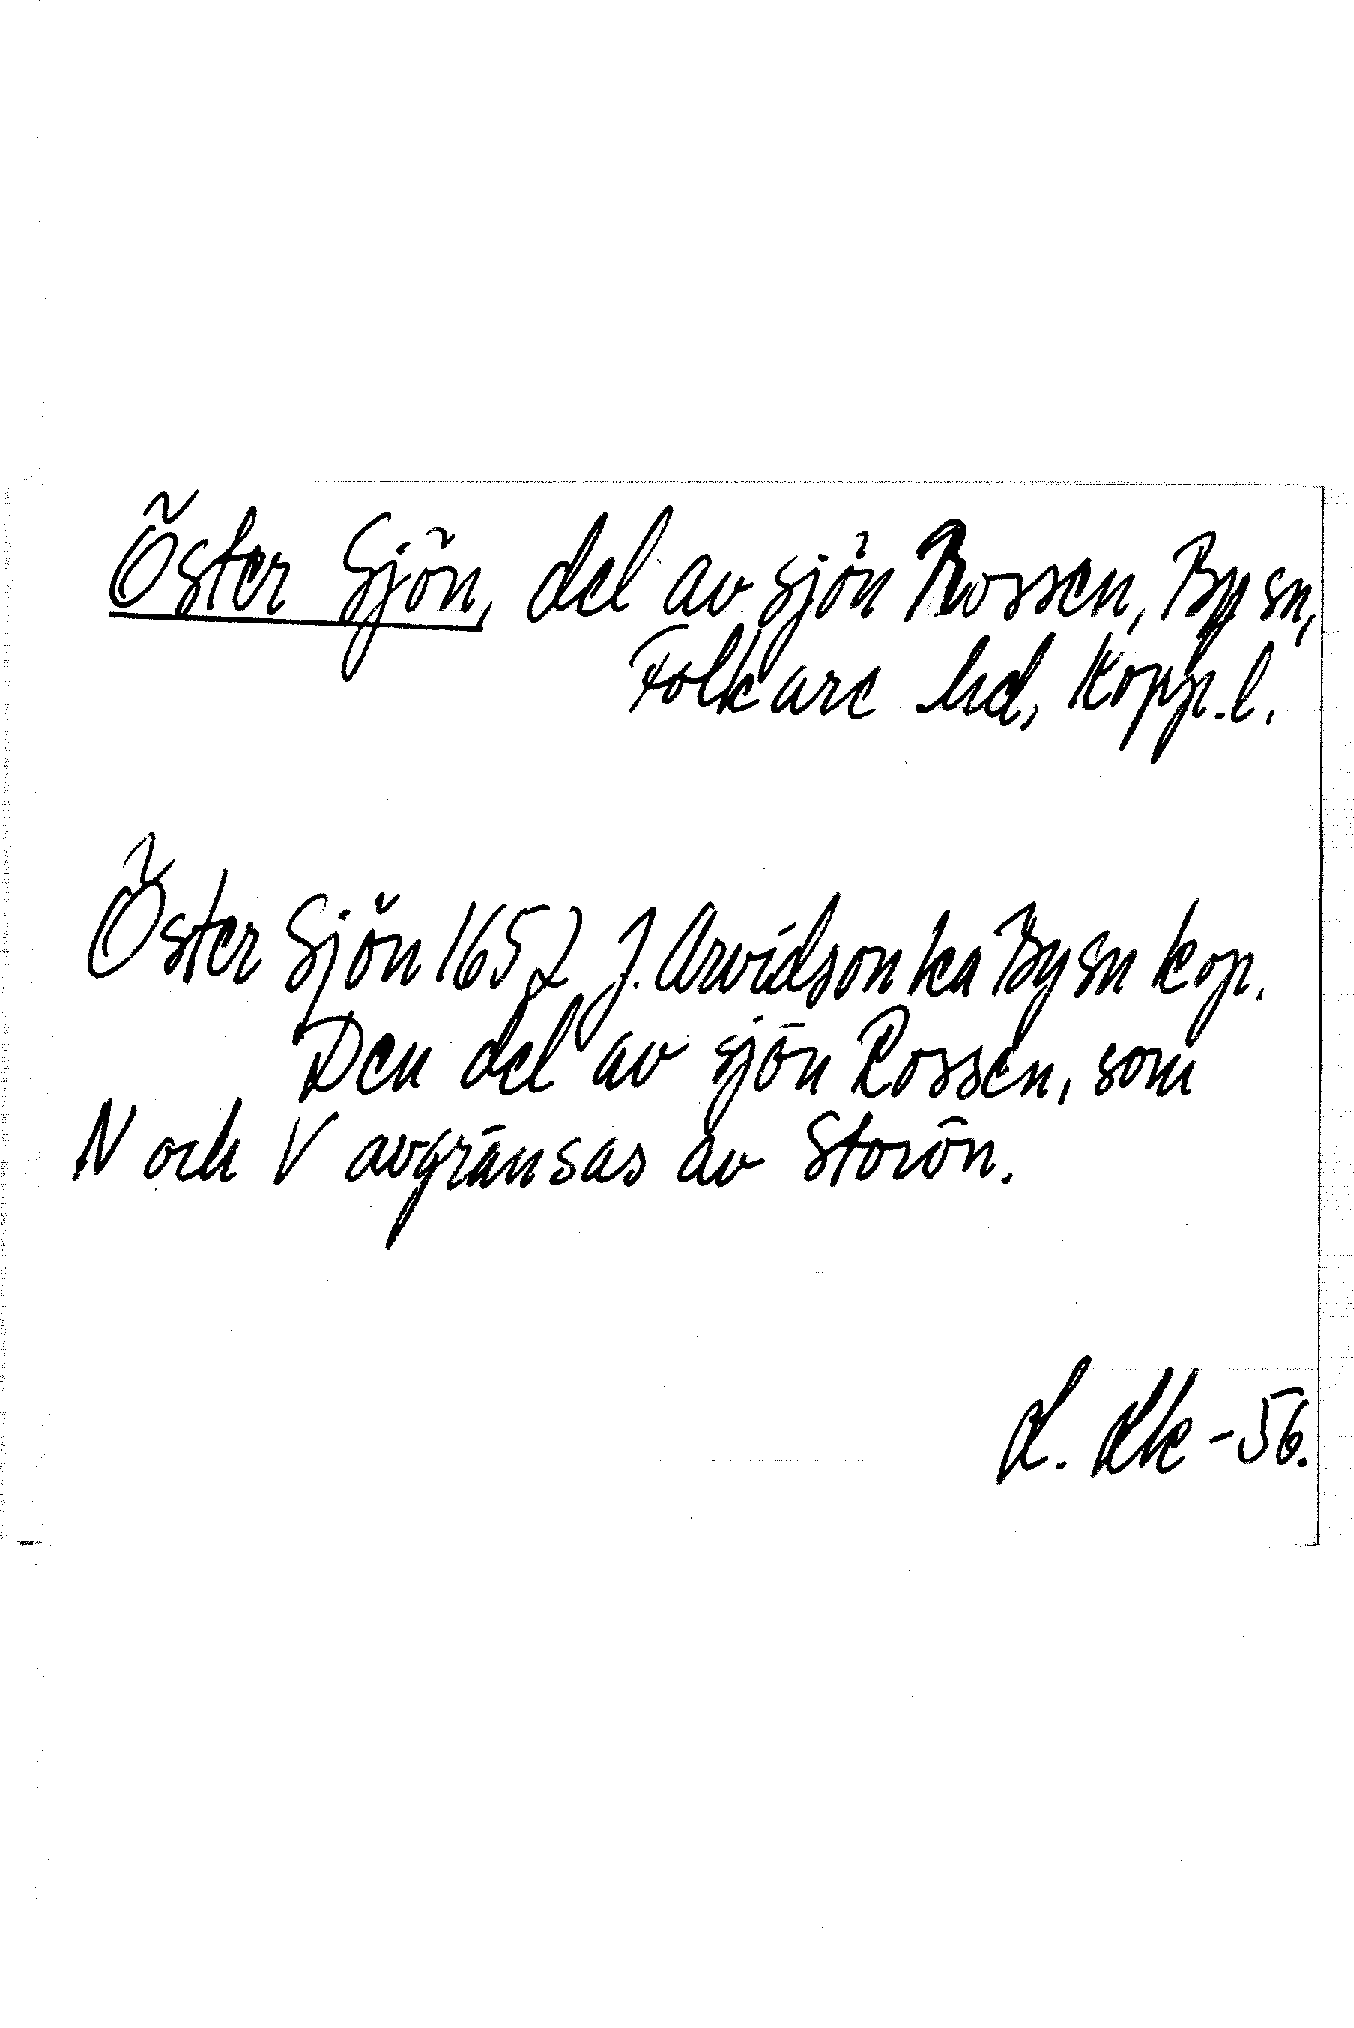 Öster Sjön, del av sjön Rossen, By sn,
Folkare hd, Kopp. l.
Öster Sjön 1652 J. Arvidson ka By sn kop.
Den del av sjön Rossen, som
N och V avgränsas av Storön.
L. Lk -56.